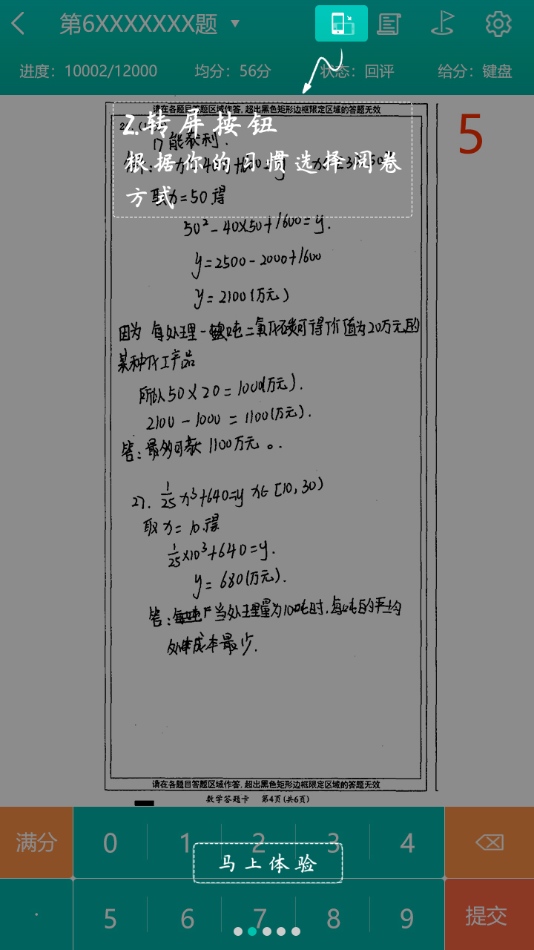 第6XXXXXXX题
进度：10002/12000 均分：56分 状态：回评 给分：键盘
请在各题目答题区域作答，超出黑色矩形边框限定区域的答题无效
5
2.转屏按钮
可能获利.
根据你的习惯选择阅卷
方式
取x=50得
50²-40×50+1600=y.
y=2500-2000+1600
y=2100(万元)
因为 每处理一吨二氧化碳可得价值为20万元的
某种化工产品
所以50×20=1000(万元).
2100-1000=1100(万元).
答:最多可获 1100万元。.
2). 1/25 x³+640=y x∈[10,30)
取x=10得
1/25×10³+640=y.
y=680(万元).
答:当处理量为10吨时,每吨的平均
处理成本最少.
请在各题目答题区域作答，超出黑色矩形边框限定区域的答题无效
数学答题卡 第4页(共6页)
满分 0 1 2 3 4
马上体验
. 5 6 7 8 9 提交